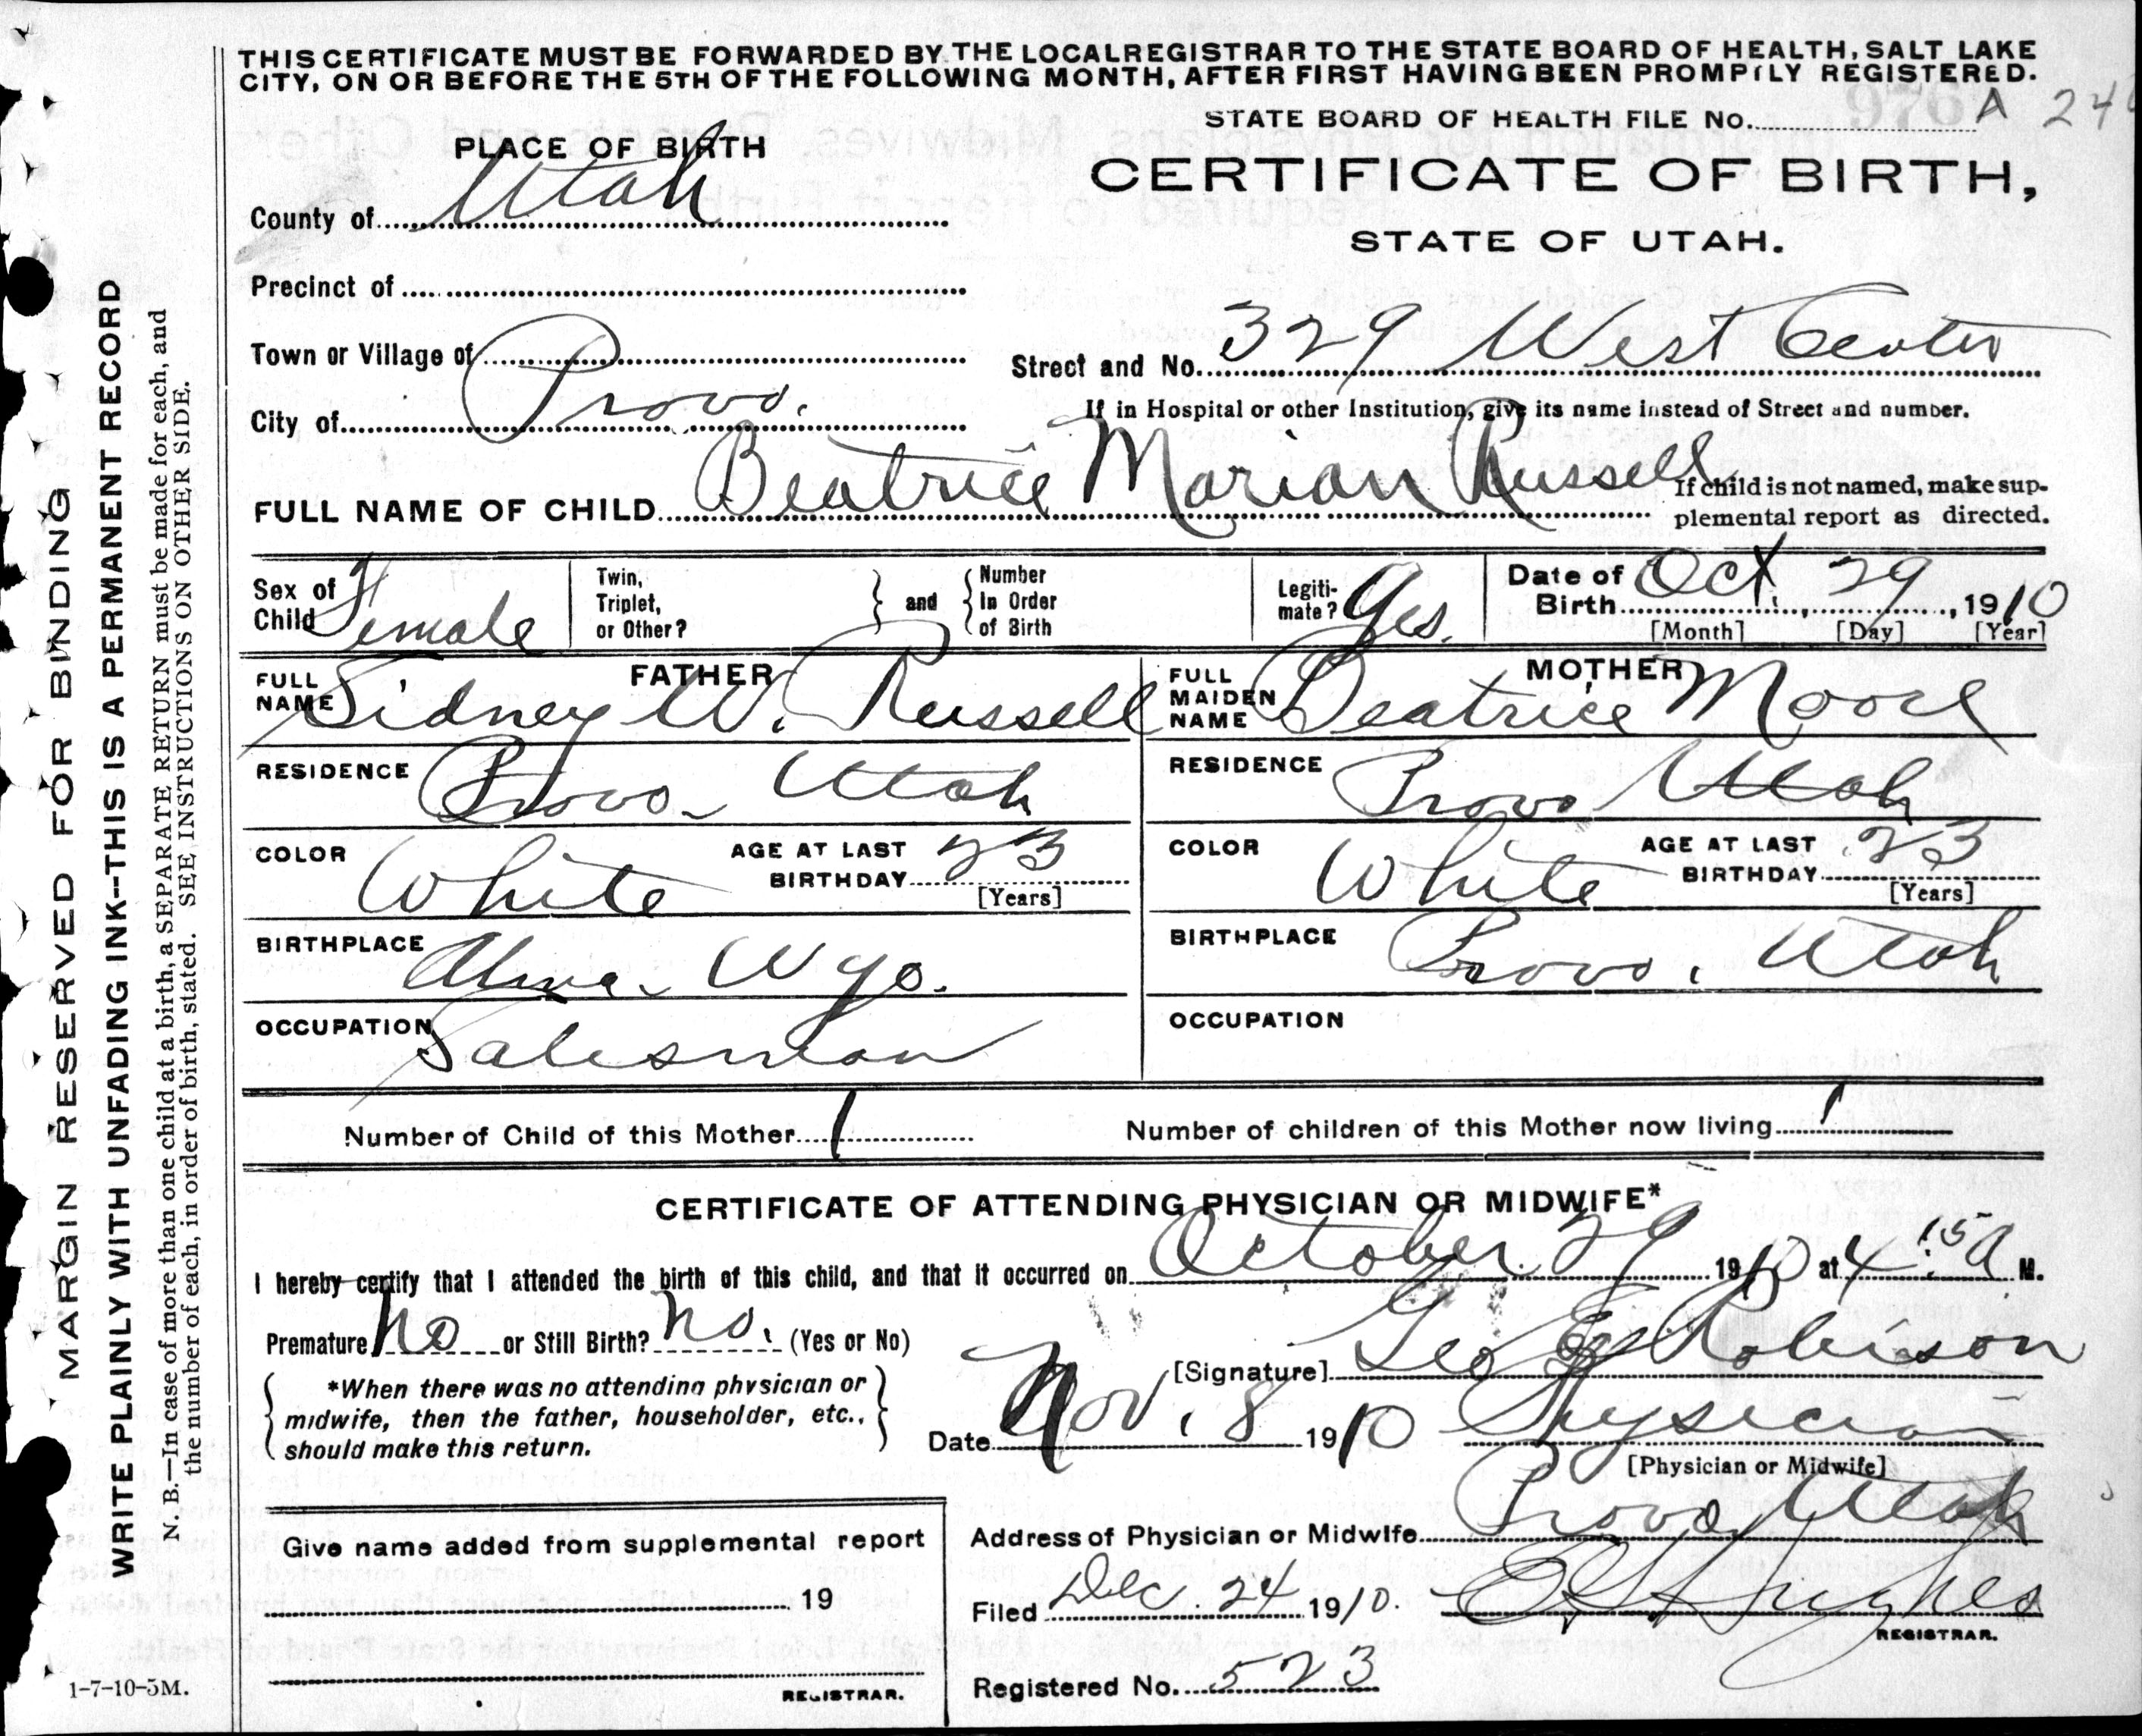 THIS CERTIFICATE MUST BE FORWARDED BY THE LOCAL REGISTRAR TO THE STATE BOARD OF HEALTH, SALT LAKE
CITY, ON OR BEFORE THE 5TH OF THE FOLLOWING MONTH, AFTER FIRST HAVING BEEN PROMPTLY REGISTERED.
STATE BOARD OF HEALTH FILE No. A
PLACE OF BIRTH
CERTIFICATE OF BIRTH,
County of Utah
STATE OF UTAH.
Precinct of
Town or Village of
Street and No. 329 West Center
City of Provo.
If in Hospital or other Institution, give its name instead of Street and number.
FULL NAME OF CHILD Beatrice Marian Russell
If child is not named, make sup-
plemental report as directed.
Sex of Child Female
Twin, Triplet, or Other?
and
Number In Order of Birth
Legiti-mate? Yes.
Date of Birth Oct. 29, 1910
[Month] [Day] [Year]
FATHER
FULL NAME Sidney W. Russell
MOTHER
FULL MAIDEN NAME Beatrice Moore
RESIDENCE Provo Utah
RESIDENCE Provo Utah
COLOR White
AGE AT LAST BIRTHDAY 23
[Years]
COLOR White
AGE AT LAST BIRTHDAY 23
[Years]
BIRTHPLACE Wyo.
BIRTHPLACE Provo, Utah
OCCUPATION Salesman
OCCUPATION
Number of Child of this Mother 1
Number of children of this Mother now living 1
CERTIFICATE OF ATTENDING PHYSICIAN OR MIDWIFE*
I hereby certify that I attended the birth of this child, and that it occurred on October 29 1910 at 4:15 A M.
Premature No or Still Birth? No. (Yes or No)
[Signature] Geo E Robison
*When there was no attending physician or
midwife, then the father, householder, etc.,
should make this return.
Date Nov. 8 1910 Physician
[Physician or Midwife]
Give name added from supplemental report
Address of Physician or Midwife Provo Utah
19
Filed Dec. 24 1910. Hughes
REGISTRAR.
REGISTRAR.
Registered No. 523
MARGIN RESERVED FOR BINDING
WRITE PLAINLY WITH UNFADING INK--THIS IS A PERMANENT RECORD
N. B.—In case of more than one child at a birth, a SEPARATE RETURN must be made for each, and
the number of each, in order of birth, stated. SEE INSTRUCTIONS ON OTHER SIDE.
1-7-10-5M.